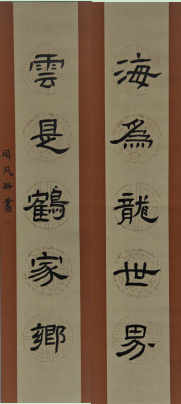 海為龍世界
雲是鶴家鄉
周凡琳書